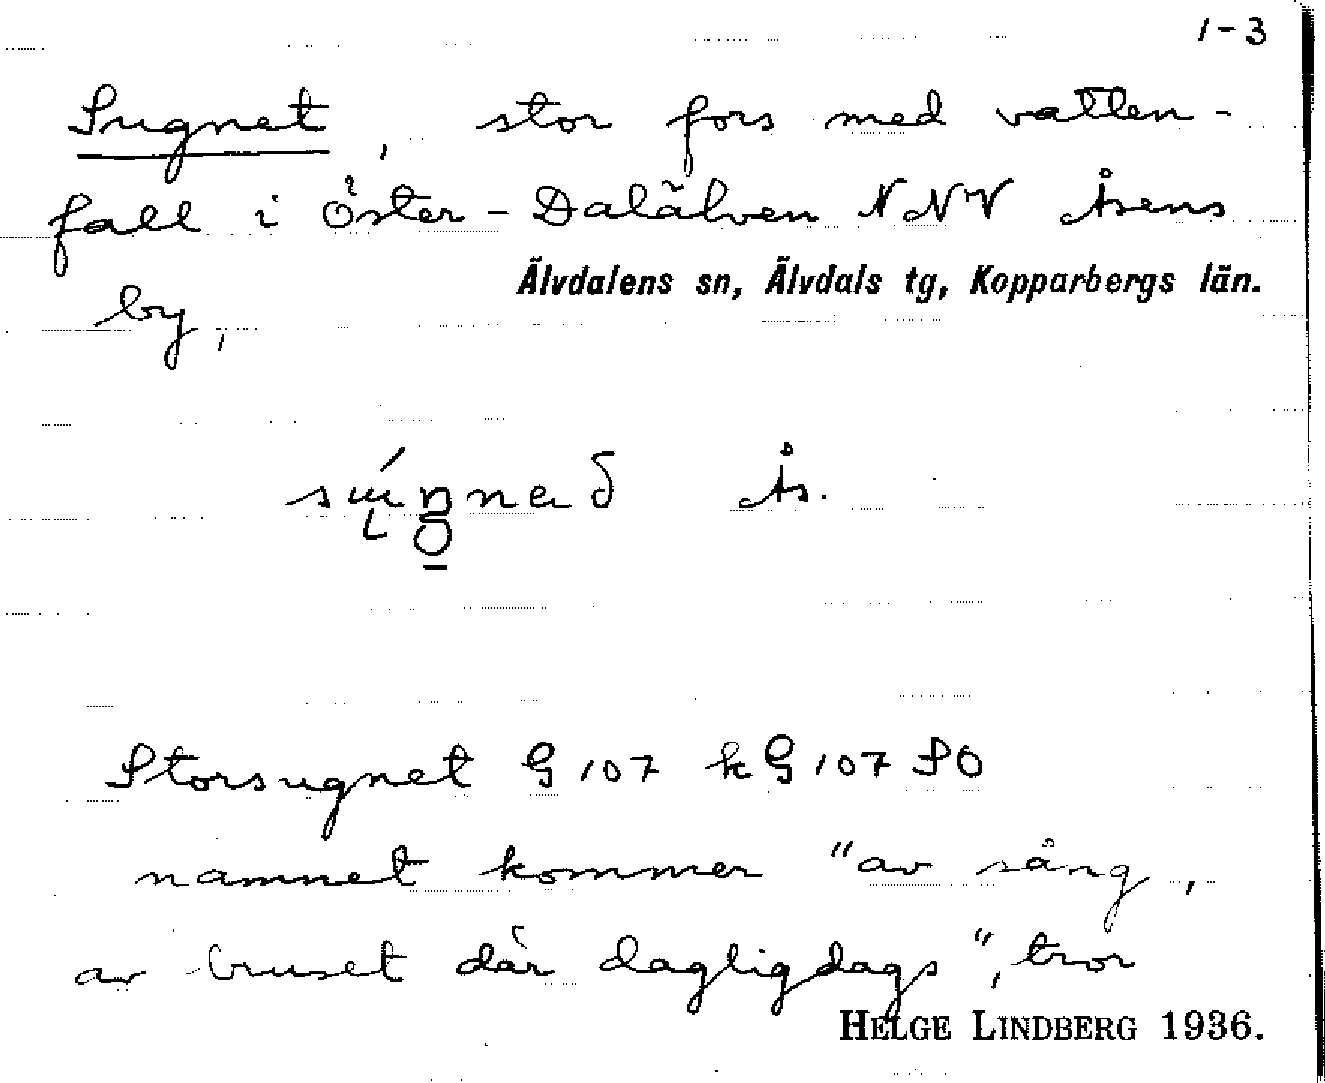 1-3
Sugnet, stor fors med vatten-
fall i Öster-Dalälven NNV Åsens
Älvdalens sn, Älvdals tg, Kopparbergs län.
by,
Ås.
Storsugnet G 107 kG 107 SO
namnet kommer "av sång,
av bruset där dagligdags", tror
HELGE LINDBERG 1936.